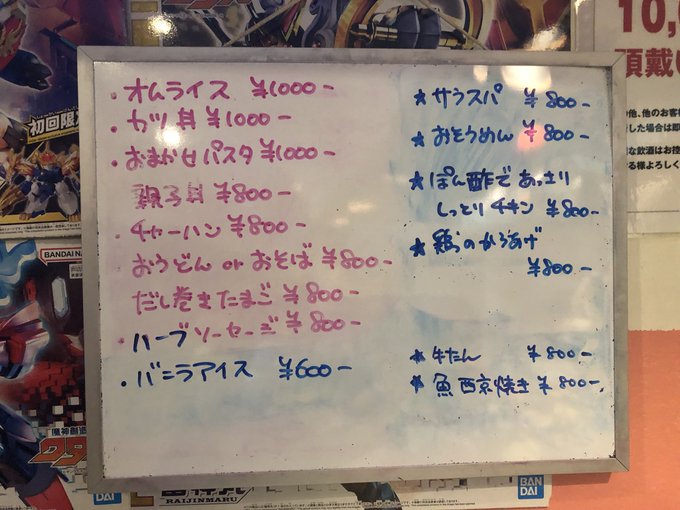 ・オムライス ¥1000-
・カツ丼 ¥1000-
・おまかせパスタ ¥1000-
親子丼 ¥800-
・チャーハン ¥800-
おうどん or おそば ¥800-
だし巻きたまご ¥800-
・ハーブソーセージ ¥800-
・バニラアイス ¥600-
★サラスパ ¥800-
★おそうめん ¥800-
★ぽん酢であっさり
しっとりチキン ¥800-
★鶏のからあげ
¥800-
★牛たん ¥800-
★魚西京焼き ¥800-
初回限
BANDAI NA
魔神創造
ワタ
BAN
DAI
RAIJINMARU
BAN
DAI
10,
頂戴
の他、他のお客
した場合は即
な飲酒はお控
る様よろしく